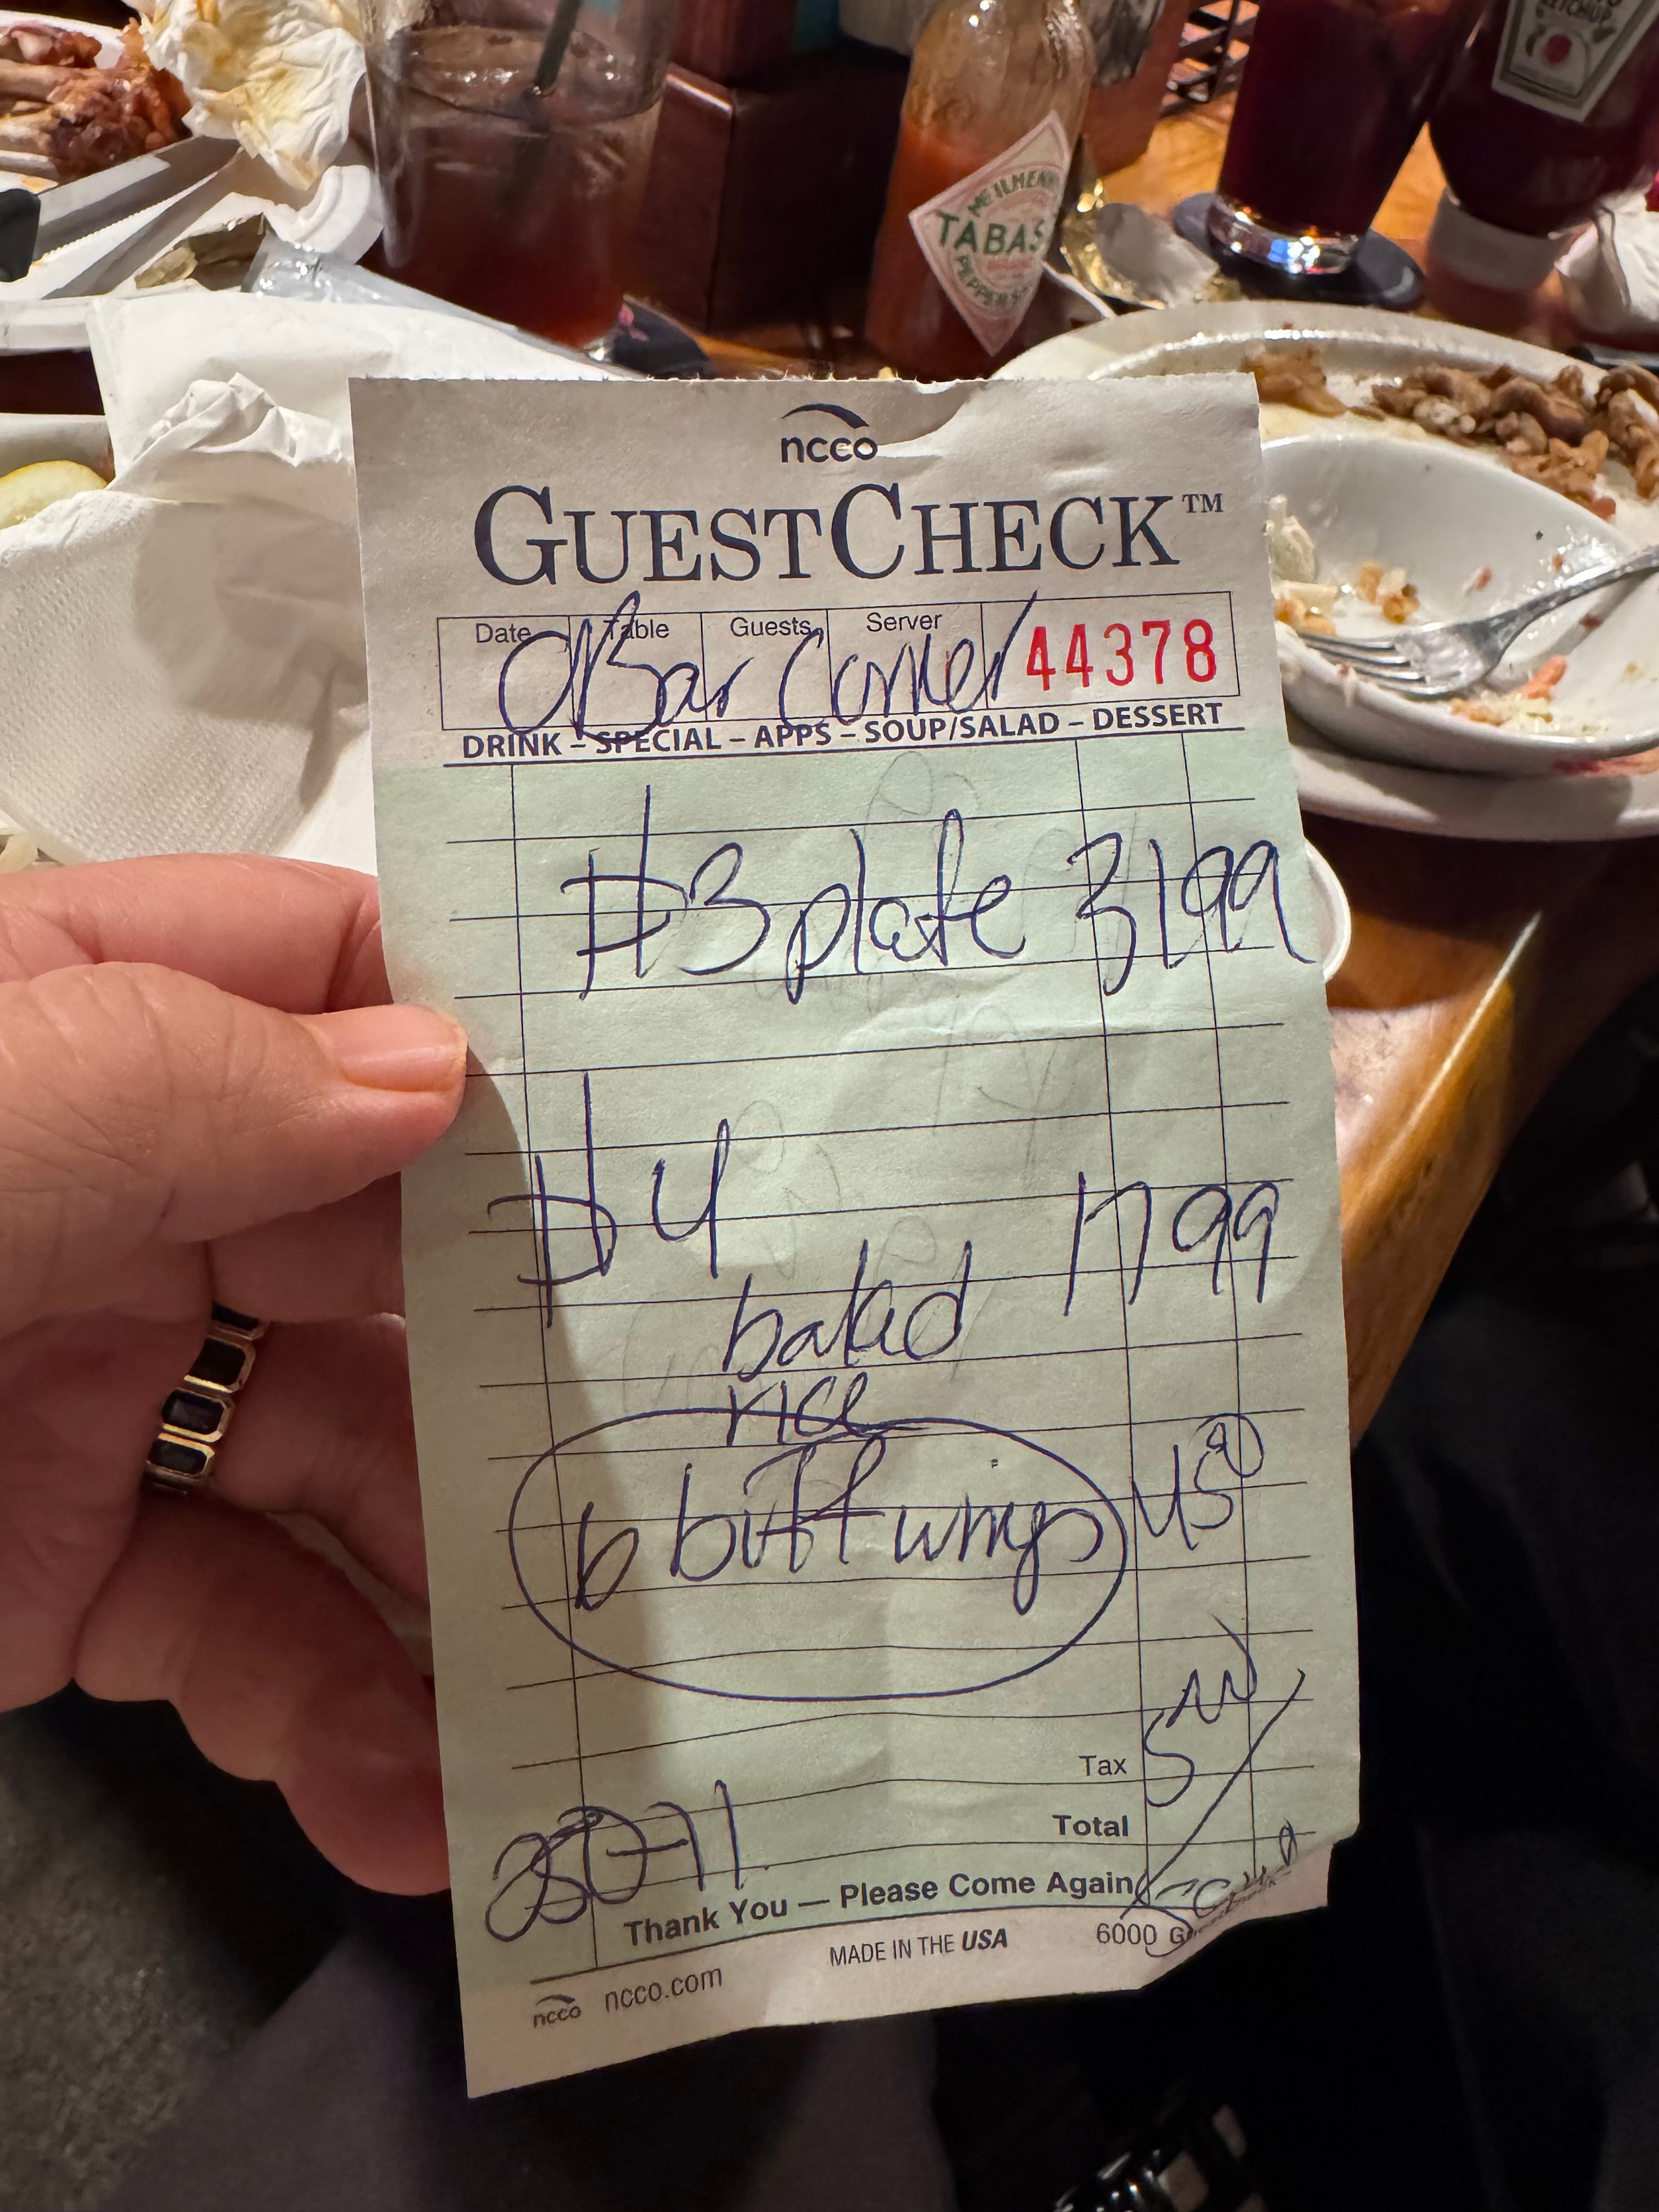 KETCHUP
McILHENNY
TABAS
PEPPER
ncco
GUESTCHECK™
Date Table Guests Server
Bar Corner 44378
DRINK – SPECIAL – APPS – SOUP/SALAD – DESSERT
#3 plate 31 99
#4 17 99
baked
rice
6 buff wings
Tax 5
Total
Thank You — Please Come Again
MADE IN THE USA 6000
ncco ncco.com